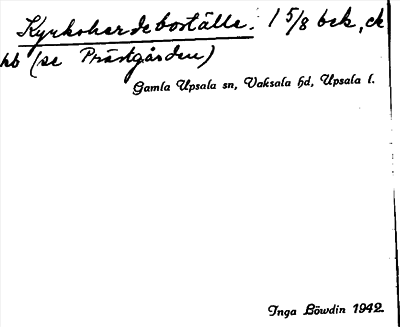 Kyrkoherdeboställe. 1 5/8 bek, ck
hb (se Prästgården)
Gamla Upsala sn, Vaksala hd, Upsala l.
Inga Löwdin 1942